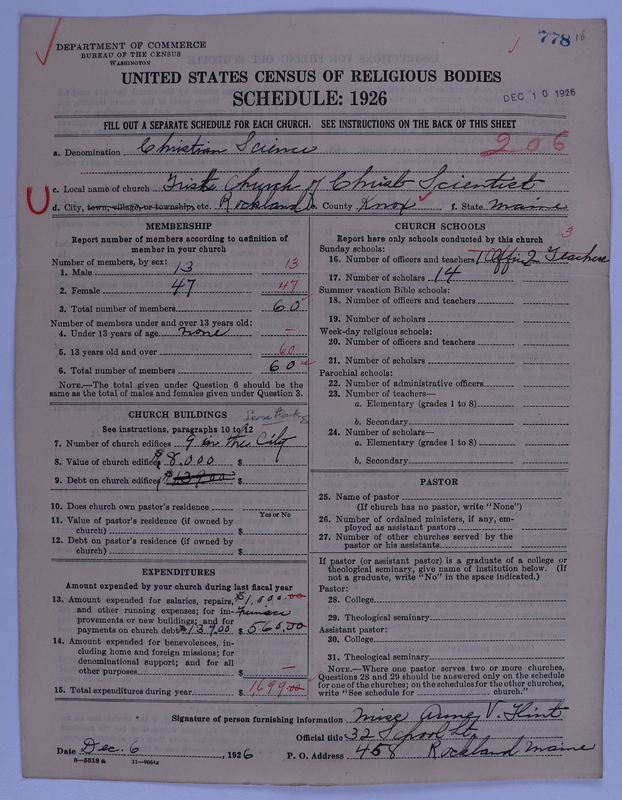 DEPARTMENT OF COMMERCE
BUREAU OF THE CENSUS
WASHINGTON
778
DEC 10 1926
UNITED STATES CENSUS OF RELIGIOUS BODIES
SCHEDULE: 1926
FILL OUT A SEPARATE SCHEDULE FOR EACH CHURCH. SEE INSTRUCTIONS ON THE BACK OF THIS SHEET
a. Denomination Christian Science 206
c. Local name of church Church of Christ Scientist
d. City, town, village, or township, etc. Rockland e. County Knox f. State Maine
MEMBERSHIP
Report number of members according to definition of
member in your church
Number of members, by sex:
1. Male 13 13
2. Female 47 47
3. Total number of members 60
Number of members under and over 13 years old:
4. Under 13 years of age none –
5. 13 years old and over 60
6. Total number of members 60
NOTE.—The total given under Question 6 should be the
same as the total of males and females given under Question 3.
CHURCH BUILDINGS
See instructions, paragraphs 10 to 12
7. Number of church edifices 9 in the City
8. Value of church edifices $8,000 $
9. Debt on church edifices $139.00 $
10. Does church own pastor's residence
Yes or No
11. Value of pastor's residence (if owned by
church) $
12. Debt on pastor's residence (if owned by
church) $
EXPENDITURES
Amount expended by your church during last fiscal year
13. Amount expended for salaries, repairs, $1,000.00
and other running expenses; for im- Furnace
provements or new buildings; and for
payments on church debt $139.00 $ 560.00
14. Amount expended for benevolences, in-
cluding home and foreign missions; for
denominational support; and for all
other purposes $ –
15. Total expenditures during year $ 1699.00
CHURCH SCHOOLS
Report here only schools conducted by this church
Sunday schools: 3
16. Number of officers and teachers 1 Offi 2 Teachers
17. Number of scholars 14
Summer vacation Bible schools:
18. Number of officers and teachers
19. Number of scholars
Week-day religious schools:
20. Number of officers and teachers
21. Number of scholars
Parochial schools:
22. Number of administrative officers
23. Number of teachers—
a. Elementary (grades 1 to 8)
b. Secondary
24. Number of scholars—
a. Elementary (grades 1 to 8)
b. Secondary
PASTOR
25. Name of pastor
(If church has no pastor, write "None")
26. Number of ordained ministers, if any, em-
ployed as assistant pastors
27. Number of other churches served by the
pastor or his assistants
If pastor (or assistant pastor) is a graduate of a college or
theological seminary, give name of institution below. (If
not a graduate, write "No" in the space indicated.)
Pastor:
28. College
29. Theological seminary
Assistant pastor:
30. College
31. Theological seminary
NOTE.—Where one pastor serves two or more churches,
Questions 28 and 29 should be answered only on the schedule
for one of the churches; on the schedules for the other churches,
write "See schedule for church."
Signature of person furnishing information Miss V. Flint
Official title 32 School St.
Date Dec. 6, 1926 P. O. Address 458 Rockland Maine
8—5518 a 11—9054a